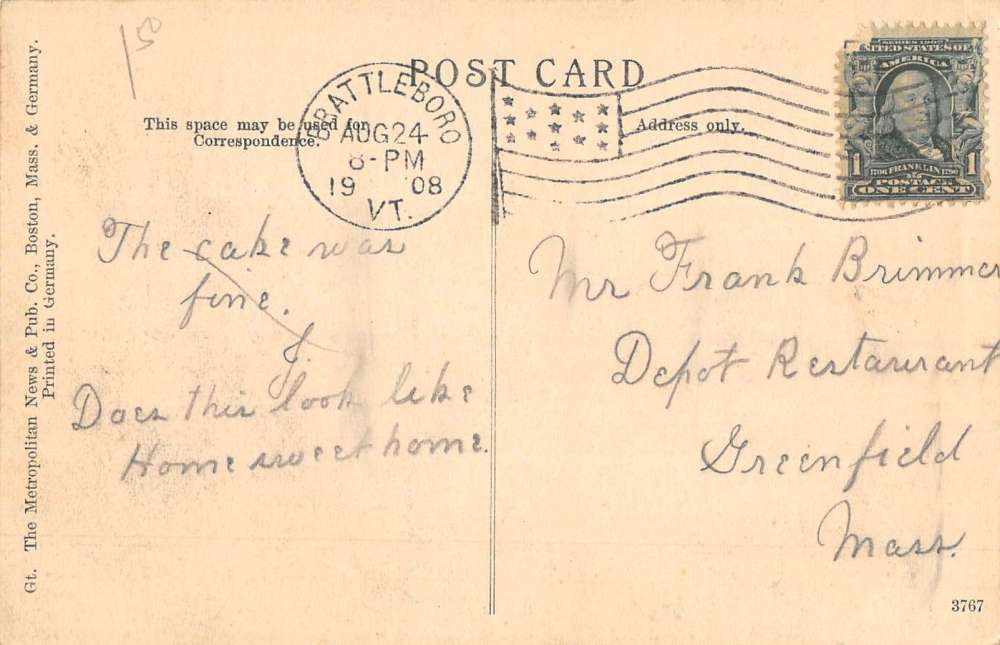 150
POST CARD
This space may be used for
Correspondence.
Address only.
BRATTLEBORO
AUG 24
8-PM
19 08
VT.
SERIES 1902
UNITED STATES OF
AMERICA
1 1
1706 FRANKLIN 1790
POSTAGE
ONE CENT
The cake was
fine.
J.
Does this look like
Home sweet home.
Mr Frank Brimmer
Depot Restaurant
Greenfield
Mass.
Gt. The Metropolitan News & Pub. Co., Boston, Mass. & Germany.
Printed in Germany.
3767